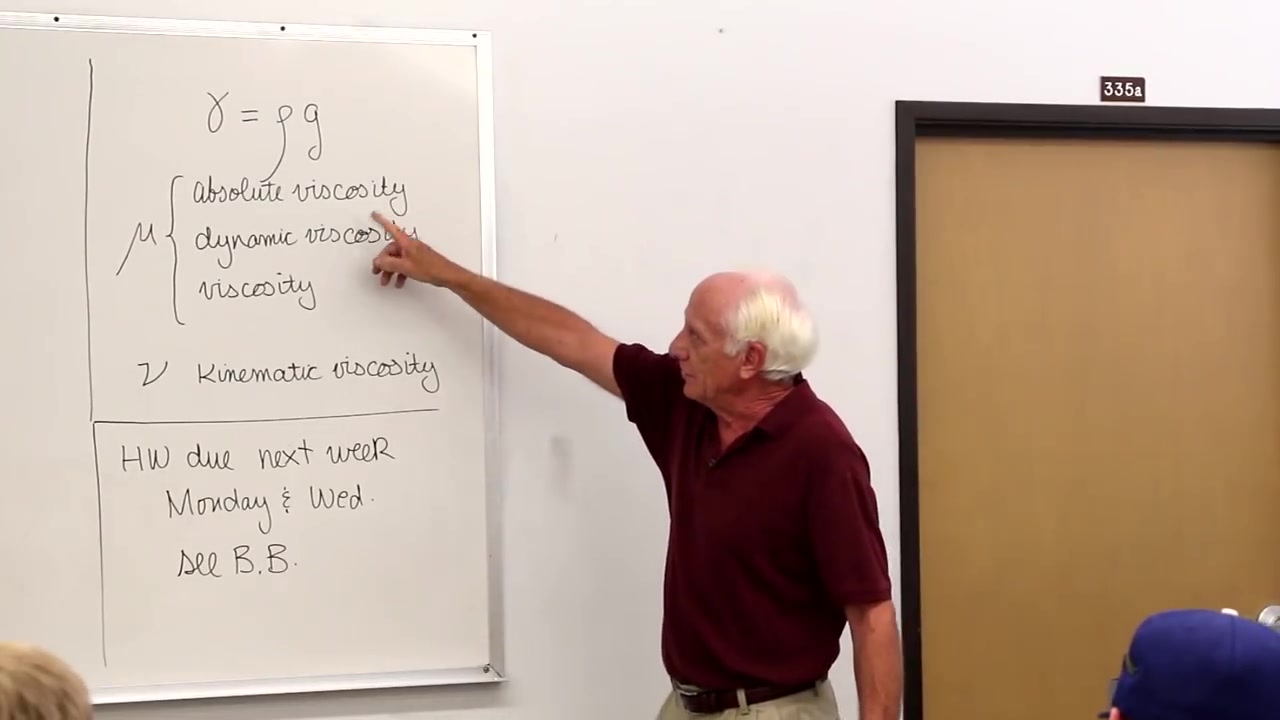 γ = ρ g
μ { absolute viscosity
dynamic viscosity
viscosity
ν Kinematic viscosity
HW due next week
Monday & Wed.
see B.B.
335a